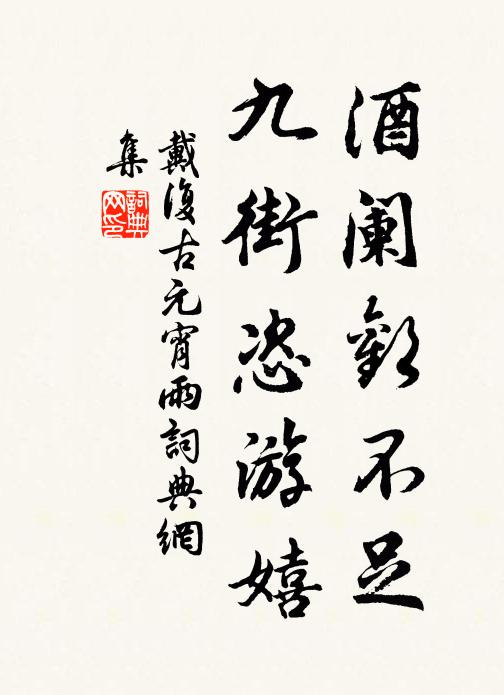 酒阑歡不足
九街恣游嬉
戴復古元宵雨詞典網
集
詞典
网印